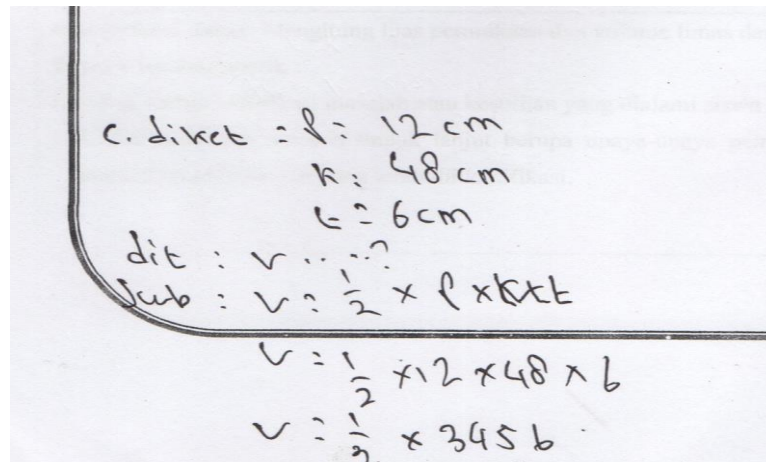 c. diket = p = 12 cm
k = 48 cm
t = 6 cm
dit : v ....?
Jwb : v = 1/2 x p x k x t
v = 1/2 x 12 x 48 x 6
v = 1/2 x 3456